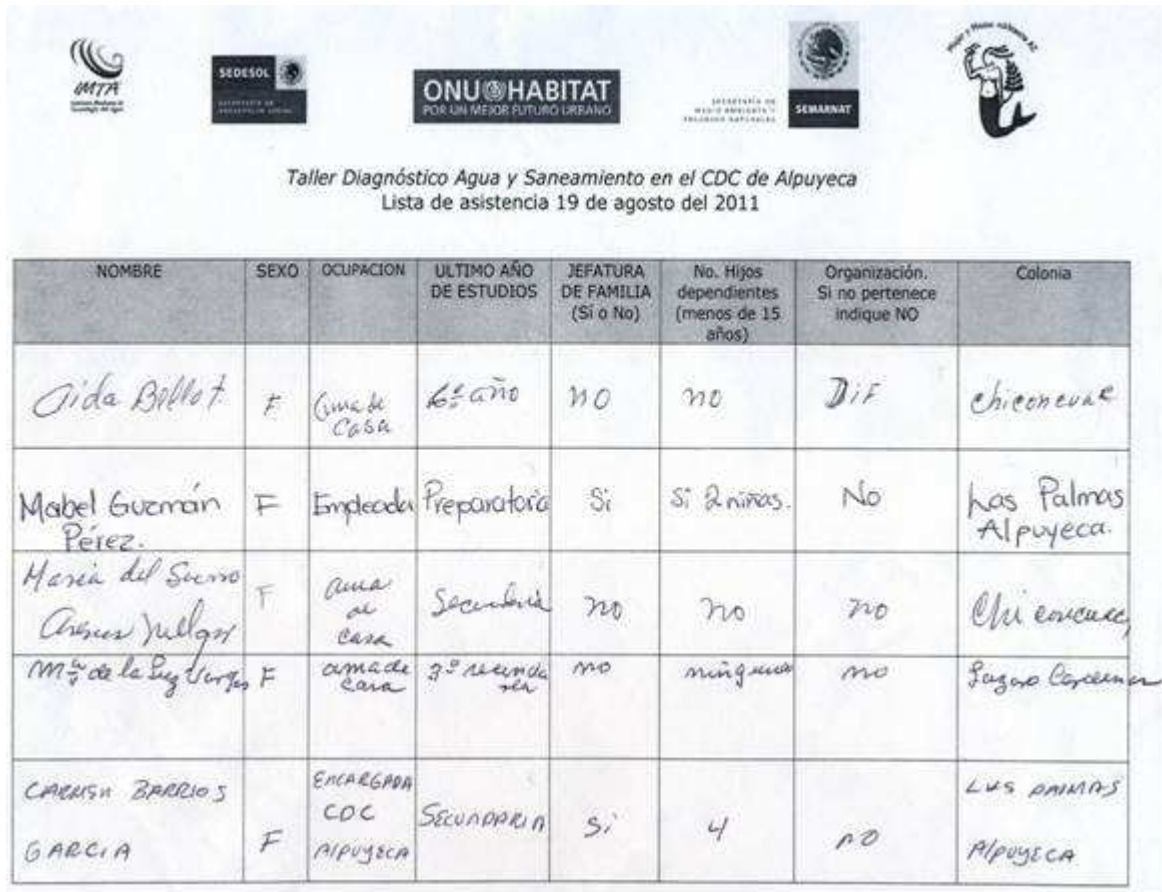 IMTA
SEDESOL
SECRETARÍA DE DESARROLLO SOCIAL
ONU HABITAT
POR UN MEJOR FUTURO URBANO
SECRETARÍA DE
MEDIO AMBIENTE Y
RECURSOS NATURALES
SEMARNAT
Taller Diagnóstico Agua y Saneamiento en el CDC de Alpuyeca
Lista de asistencia 19 de agosto del 2011
NOMBRE SEXO OCUPACION ULTIMO AÑO DE ESTUDIOS JEFATURA DE FAMILIA (Si o No) No. Hijos dependientes (menos de 15 años) Organización. Si no pertenece indique NO Colonia
Aida F ama de casa 6º año no no DiF
Mabel Guzmán Pérez. F Empleada Preparatoria Si Si 2 niñas. No Las Palmas Alpuyeca.
Maria del F ama de casa Secundaria no no no
Mª de la Luz Vargas F ama de casa 3º secundaria no no Lazaro Cardenas
CARMEN BARRIOS GARCIA F ENCARGADA CDC AlPUYECA SECUNDARIA Si 4 no AlPUYECA